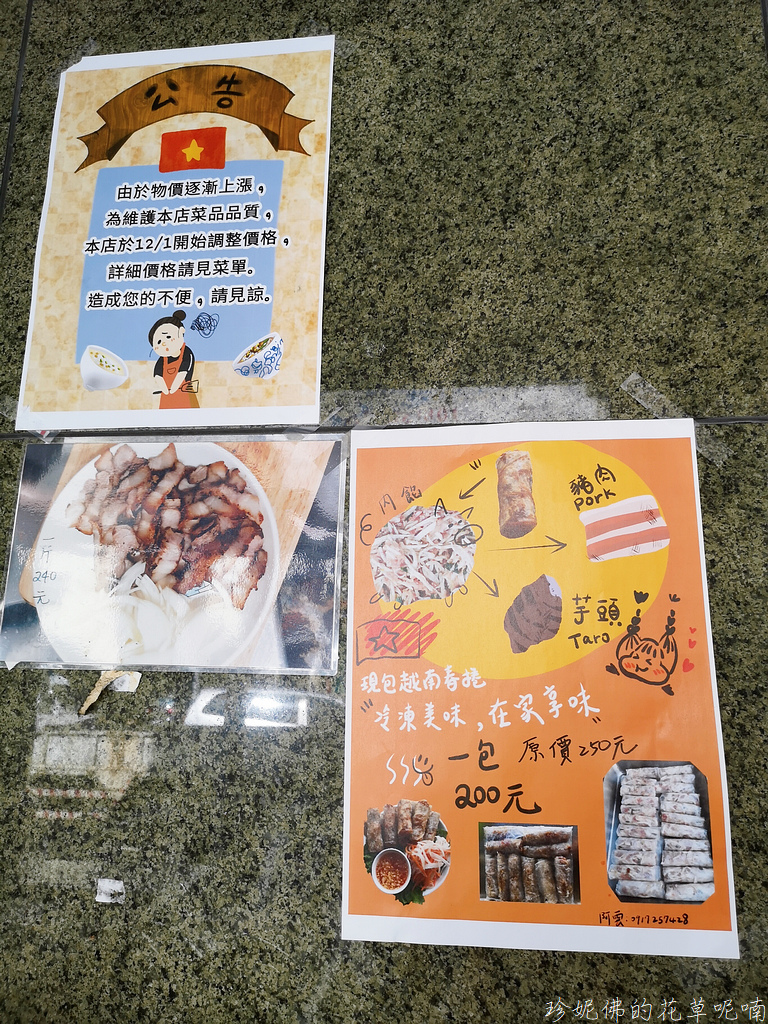 公告
由於物價逐漸上漲，
為維護本店菜品品質，
本店於12/1開始調整價格，
詳細價格請見菜單。
造成您的不便，請見諒。
一斤
240
元
內餡
豬肉
pork
芋頭
Taro
現包越南春捲
"冷凍美味，在家享味"
一包
原價250元
200元
阿雲:0917257428
珍妮佛的花草呢喃